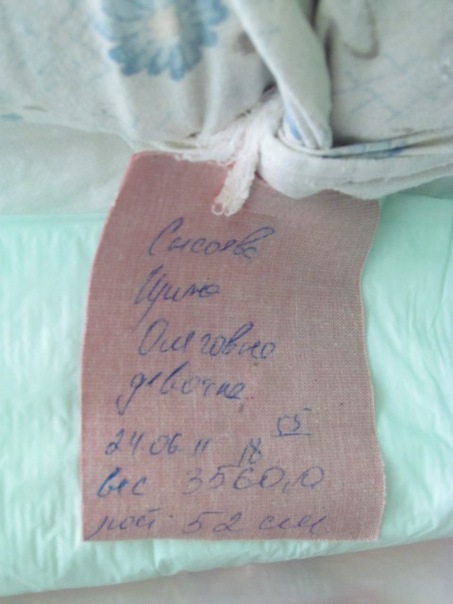 Сысоева
Ирина
Олеговна
девочка
24.06.11 18 55
вес 3560,0
рост 52 см